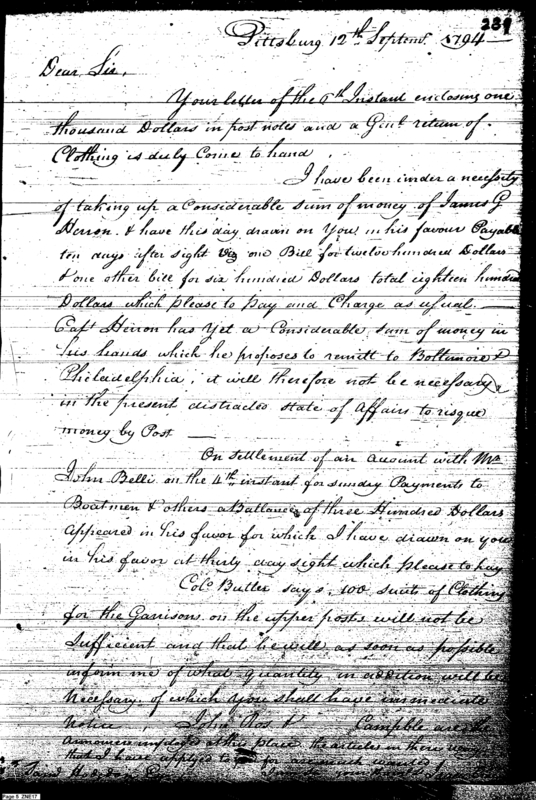 239
Pittsburg 12th Septemr. 1794
Dear Sir,
Your letter of the 6th Instant enclosing one
thousand Dollars in post notes and a Genl. return of
Clothing is duly Come to hand.
I have been under a necessity
of taking up a Considerable sum of money of James G
Herron & have this day drawn on You in his favour Payable
ten days after sight Viz one Bill for twelve hundred Dollars
& one other bill for six hundred Dollars total eighteen hundred
Dollars which please to pay and Charge as usual.
Capt Herron has Yet a Considerable sum of money in
his hands which he proposes to remitt to Boltimore &
Philadelphia, it will therefore not be necessary
in the present distracted state of Affairs to risque
money by Post
On settlement of an account with Mr
John Belli on the 4th instant for sunday Payments to
Boatmen & others a Ballance of three Hundred Dollars
appeared in his favor for which I have drawn on you
in his favor at thirty day sight which please to pay
Colo. Butler says, 100 suits of Clothing
for the Garrisons on the upper posts will not be
Sufficient and that he will as soon as possible
inform me of what quantity in addition will be
Necessary of which You shall have immediate
Notice, John Campble are the
Armourers employed at this place the articles in there
that I have applied to
Page 5 ZNE17